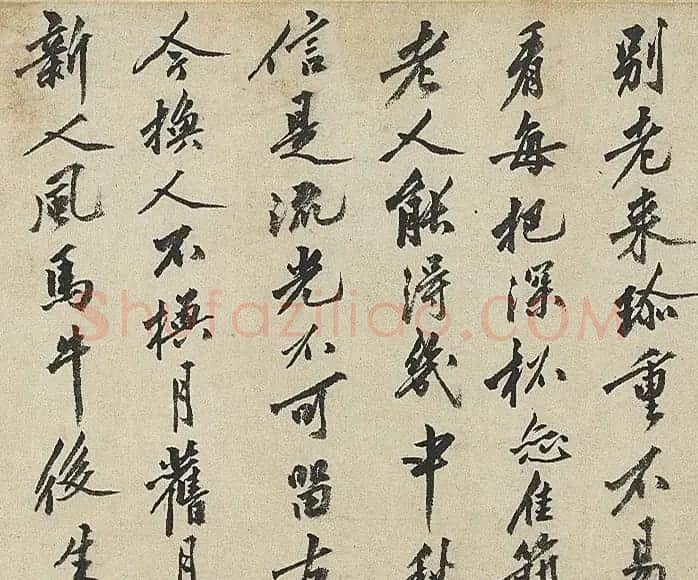 别老来珎重不易
看每把深杯恋佳節
老人能得幾中秋
信是流光不可留古
今換人不換月舊月
新人風馬牛後生
Shufaziliao.COM